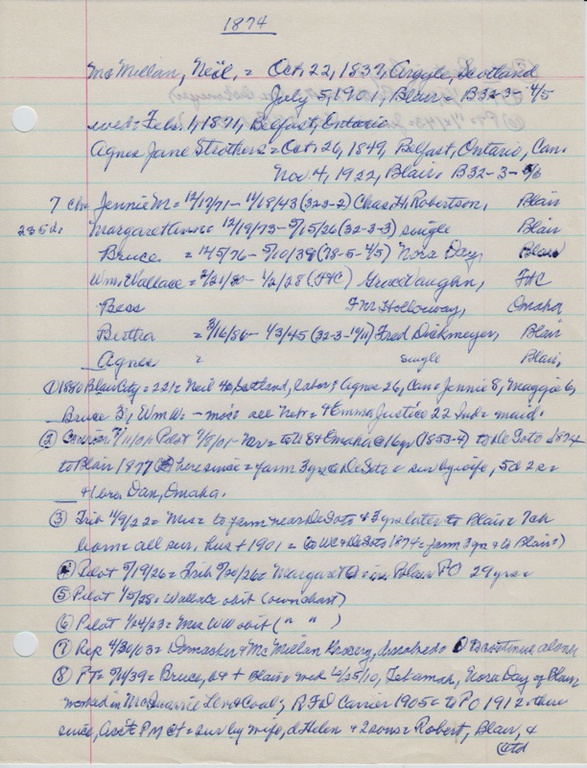 1874
McMillan, Neil, = Oct, 22, 1837, Argyle, Scotland
July 5, 1901, Blair = B32-3-4/5
wed = Feb. 1, 1871, Belfast, Ontario
Agnes Jane Strothers = Oct. 26, 1849, Belfast, Ontario, Can.
Nov. 4, 1922, Blair. B32-3-5/6
7 ch. Jennie M = 12/17/71 - 11/18/43 (32-3-2) Chas. H. Robertson, Blair
Margaret = 12/19/73 - 5/15/26 (32-3-3) single Blair
Bruce = 5/76 - 5/10/39 (78-5-4/5) Nora Day, Blair
Wm. Wallace = 2/21/80 - 1/2/28 (FHC) Vaughan, FHC
Bess Holloway, Omaha
Bertha = 3/16/86 - 1/3/45 (32-3-11) Fred Dickmeyer, Blair
Agnes = single Blair,
① 1880 Blair City = 221 = Neil 40 Scotland, labor; Agnes 26, Can = Jennie 8, Maggie 6,
Bruce 3; Wm W. - mos. all Neb. = + Emma Justice 22 maid.
② 7/11/01 Pilot 7/8/01 - = to US + Omaha @ 16 yr (1853-4) to DeSoto 1874
to Blair 1877 here since = farm 3 yrs @ DeSoto = sur by wife, 5d 2s =
+ 1 bro. Dan, Omaha.
③ Trib 11/9/22 = Mrs = to farm near DeSoto + 3 yrs later to Blair = 7ch
born = all sur, hus + 1901 = to DeSoto 1874 = farm 3 yr + to Blair)
④ Pilot 5/19/26 = Trib 5/20/26 = Margaret = in Blair PO 29 yrs =
⑤ Pilot 1/5/28 = Wallace obit (own chart)
⑥ Pilot 1/24/23 = Mrs WW obit ( " " )
⑦ Rep 4/30/03 = + McMillan Grocery, dissolved = continue alone
⑧ PT = 5/11/39 = Bruce, + Blair = wed 10/25/10, Tekamah, Nora Day of Blair
worked in McQuarrie + Coal; RFD Carrier 1905 = to PO 1912 = there
since, Ass't PM = sur by wife, d Helen + 2 sons = Robert, Blair, +
Ctd